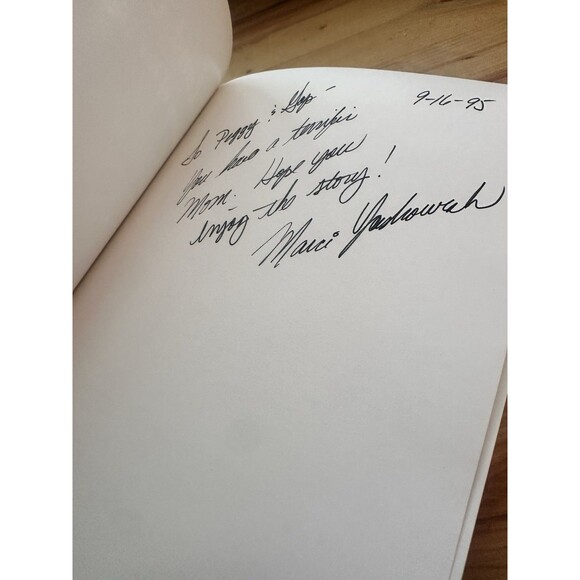 9-16-95
To Peggy & 
You have a terrific
Mom. Hope you
enjoy the story!
Marci